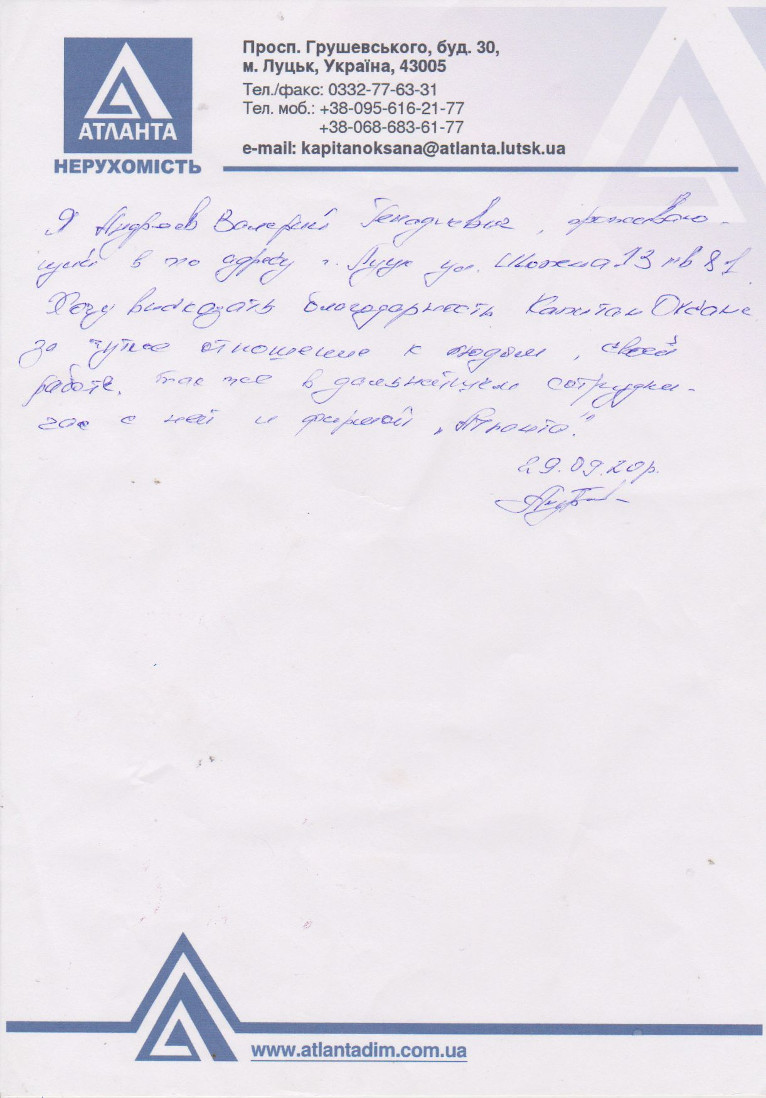 АТЛАНТА
НЕРУХОМІСТЬ
Просп. Грушевського, буд. 30,
м. Луцьк, Україна, 43005
Тел./факс: 0332-77-63-31
Тел. моб.: +38-095-616-21-77
+38-068-683-61-77
e-mail: kapitanoksana@atlanta.lutsk.ua
Я Валерий , проживаю-
щий в по адресу г. Луцк ул. 13 кв 81
Хочу благодарность Капитан Оксане
за чуткое отношение к людям, своей
работе. так же в дальнейшем сотрудни-
час с ней и фирмой „Атланта."
29.09.20р.
www.atlantadim.com.ua